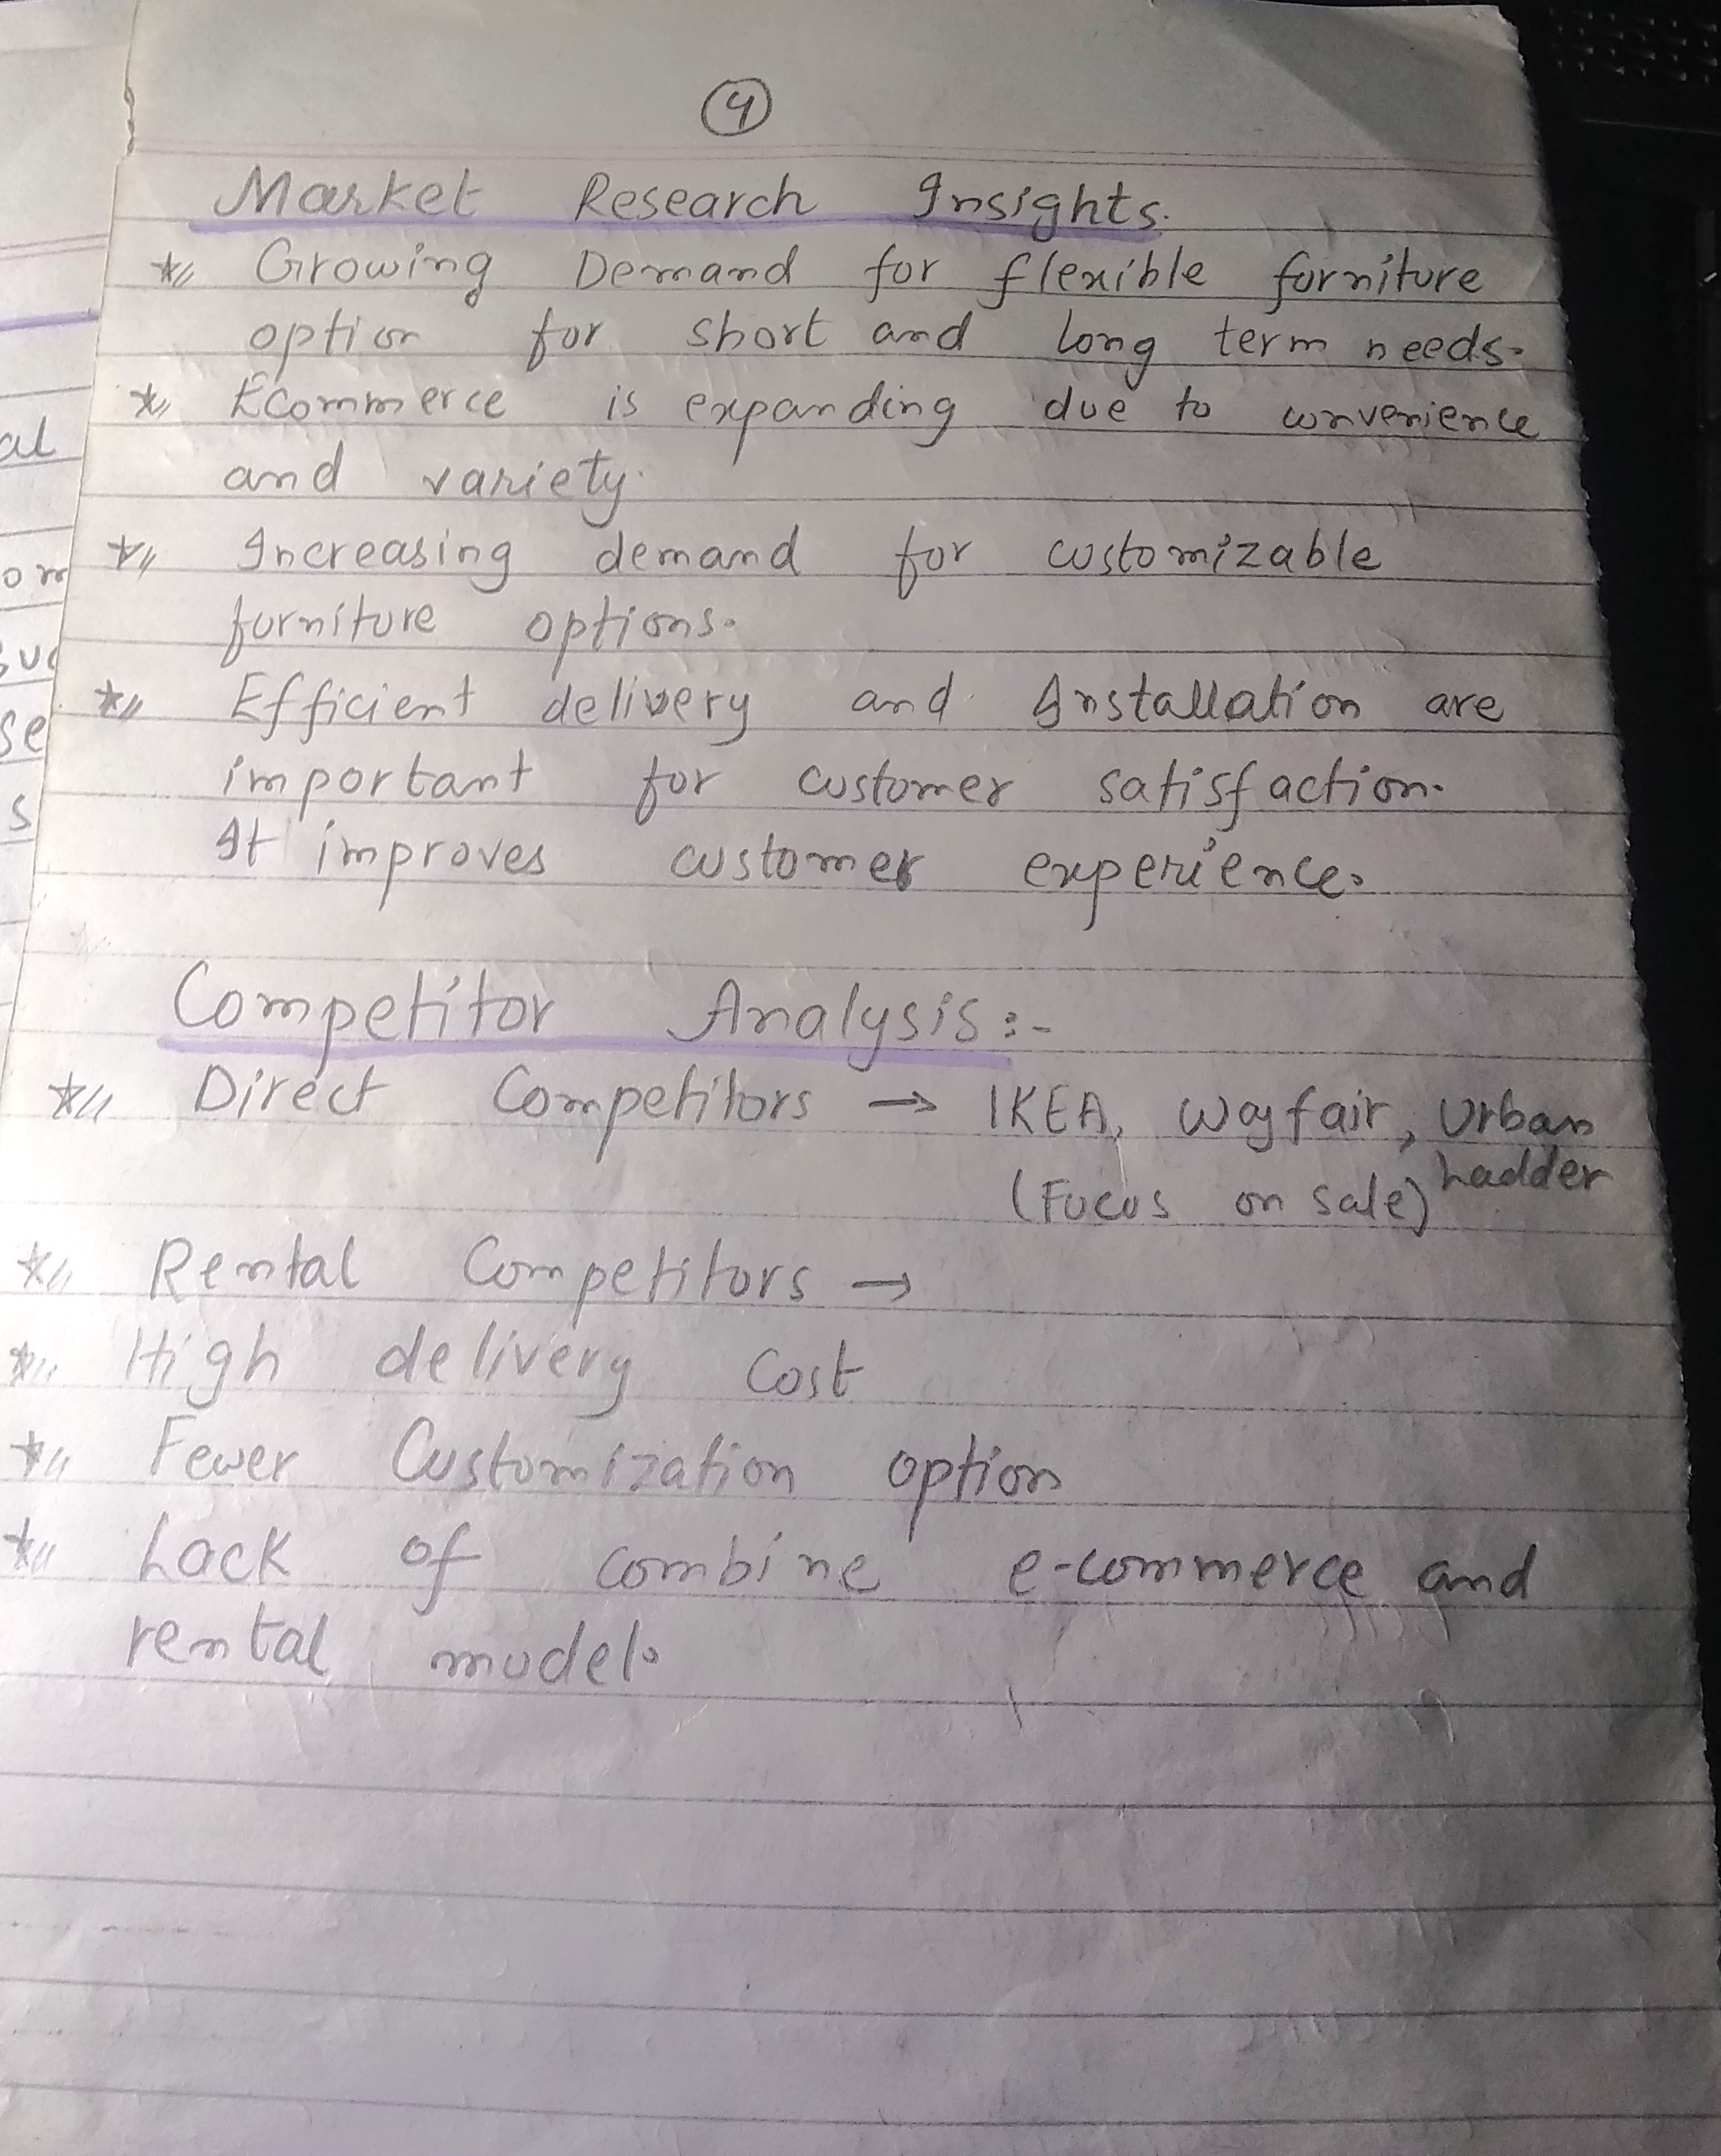 4
Market Research Insights.
* Growing Demand for flexible furniture
option for short and long term needs.
* Ecommerce is expanding due to convenience
and variety.
* Increasing demand for customizable
furniture options.
* Efficient delivery and Installation are
important for customer satisfaction.
It improves customer experience.
Competitor Analysis:-
* Direct Competitors → IKEA, Wayfair, Urban
(Focus on sale) Ladder
* Rental Competitors →
* High delivery Cost
* Fewer Customization option
* Lack of combine e-commerce and
rental model.
al
om
se
s